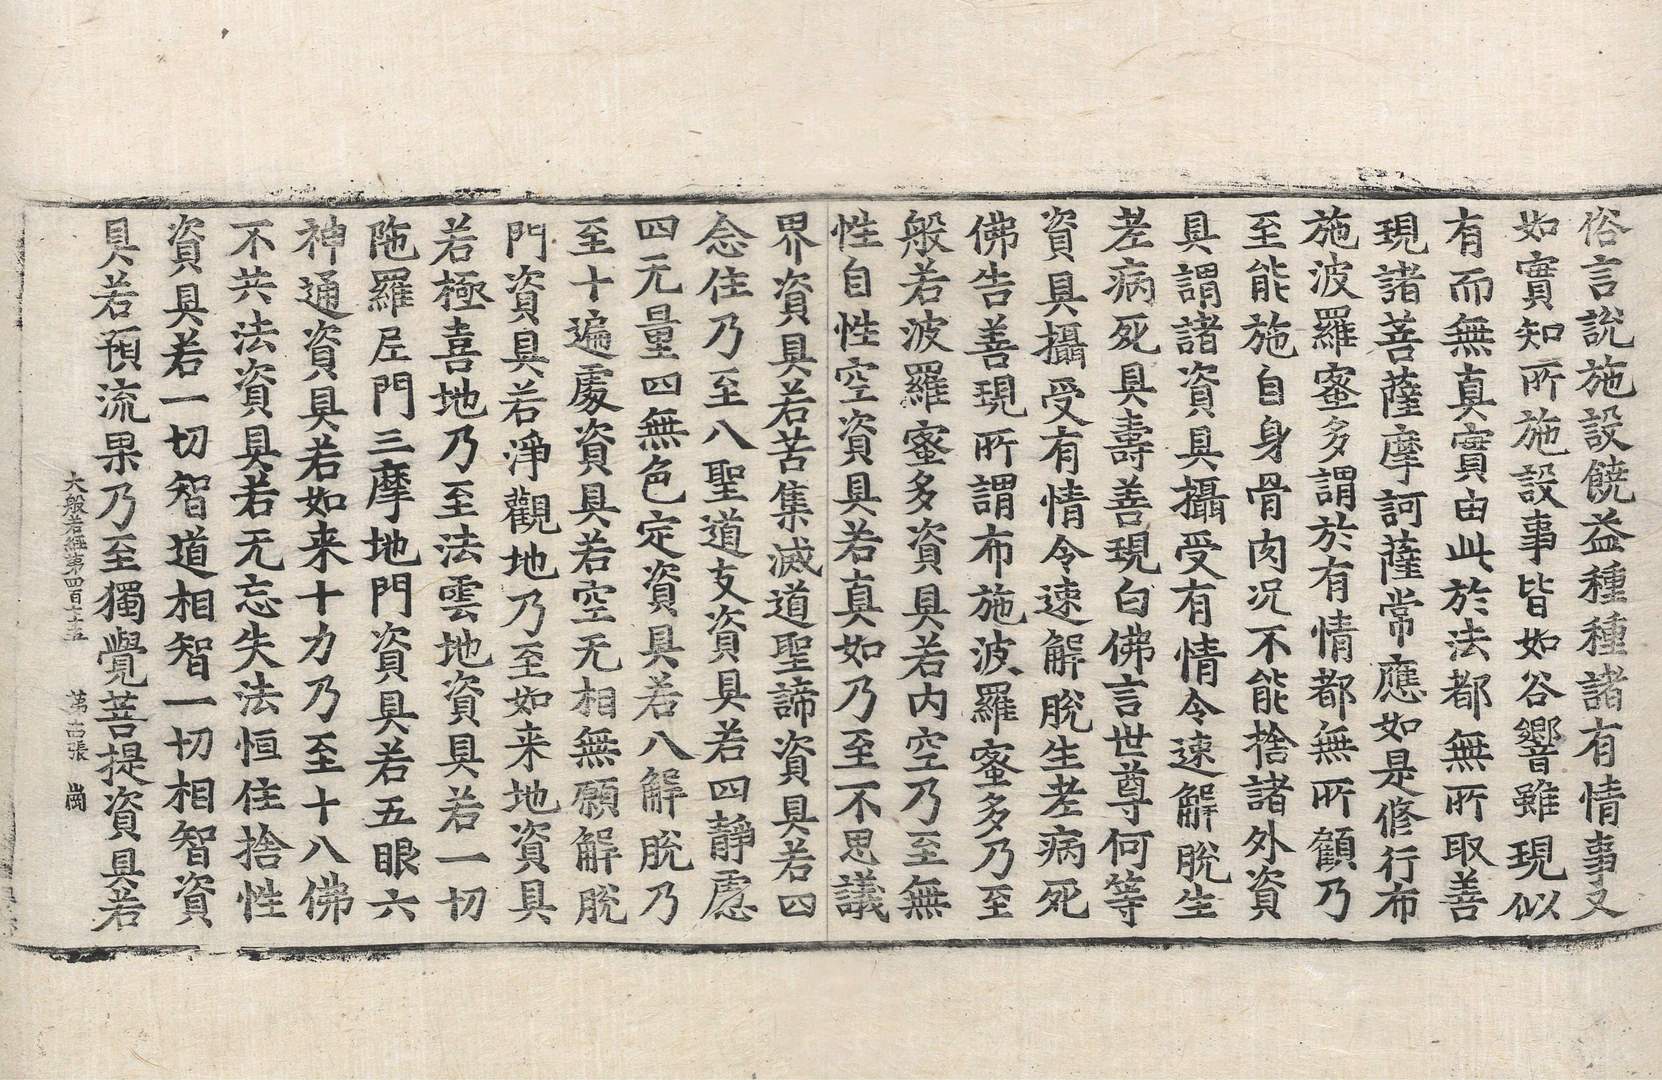 俗言說施設饒益種種諸有情事又
如實知所施設事皆如谷響雖現似
有而無真實由此於法都無所取善
現諸菩薩摩訶薩常應如是修行布
施波羅蜜多謂於有情都無所顧乃
至能施自身骨肉況不能捨諸外資
具謂諸資具攝受有情令速解脫生
老病死具壽善現白佛言世尊何等
資具攝受有情令速解脫生老病死
佛告善現所謂布施波羅蜜多乃至
般若波羅蜜多資具若內空乃至無
性自性空資具若真如乃至不思議
界資具若苦集滅道聖諦資具若四
念住乃至八聖道支資具若四靜慮
四无量四無色定資具若八解脫乃
至十遍處資具若空无相無願解脫
門資具若淨觀地乃至如来地資具
若極喜地乃至法雲地資具若一切
陁羅尼門三摩地門資具若五眼六
神通資具若如来十力乃至十八佛
不共法資具若无忘失法恒住捨性
資具若一切智道相智一切相智資
具若預流果乃至獨覺菩提資具若
大般若經第四百七十五 第十四張 崗